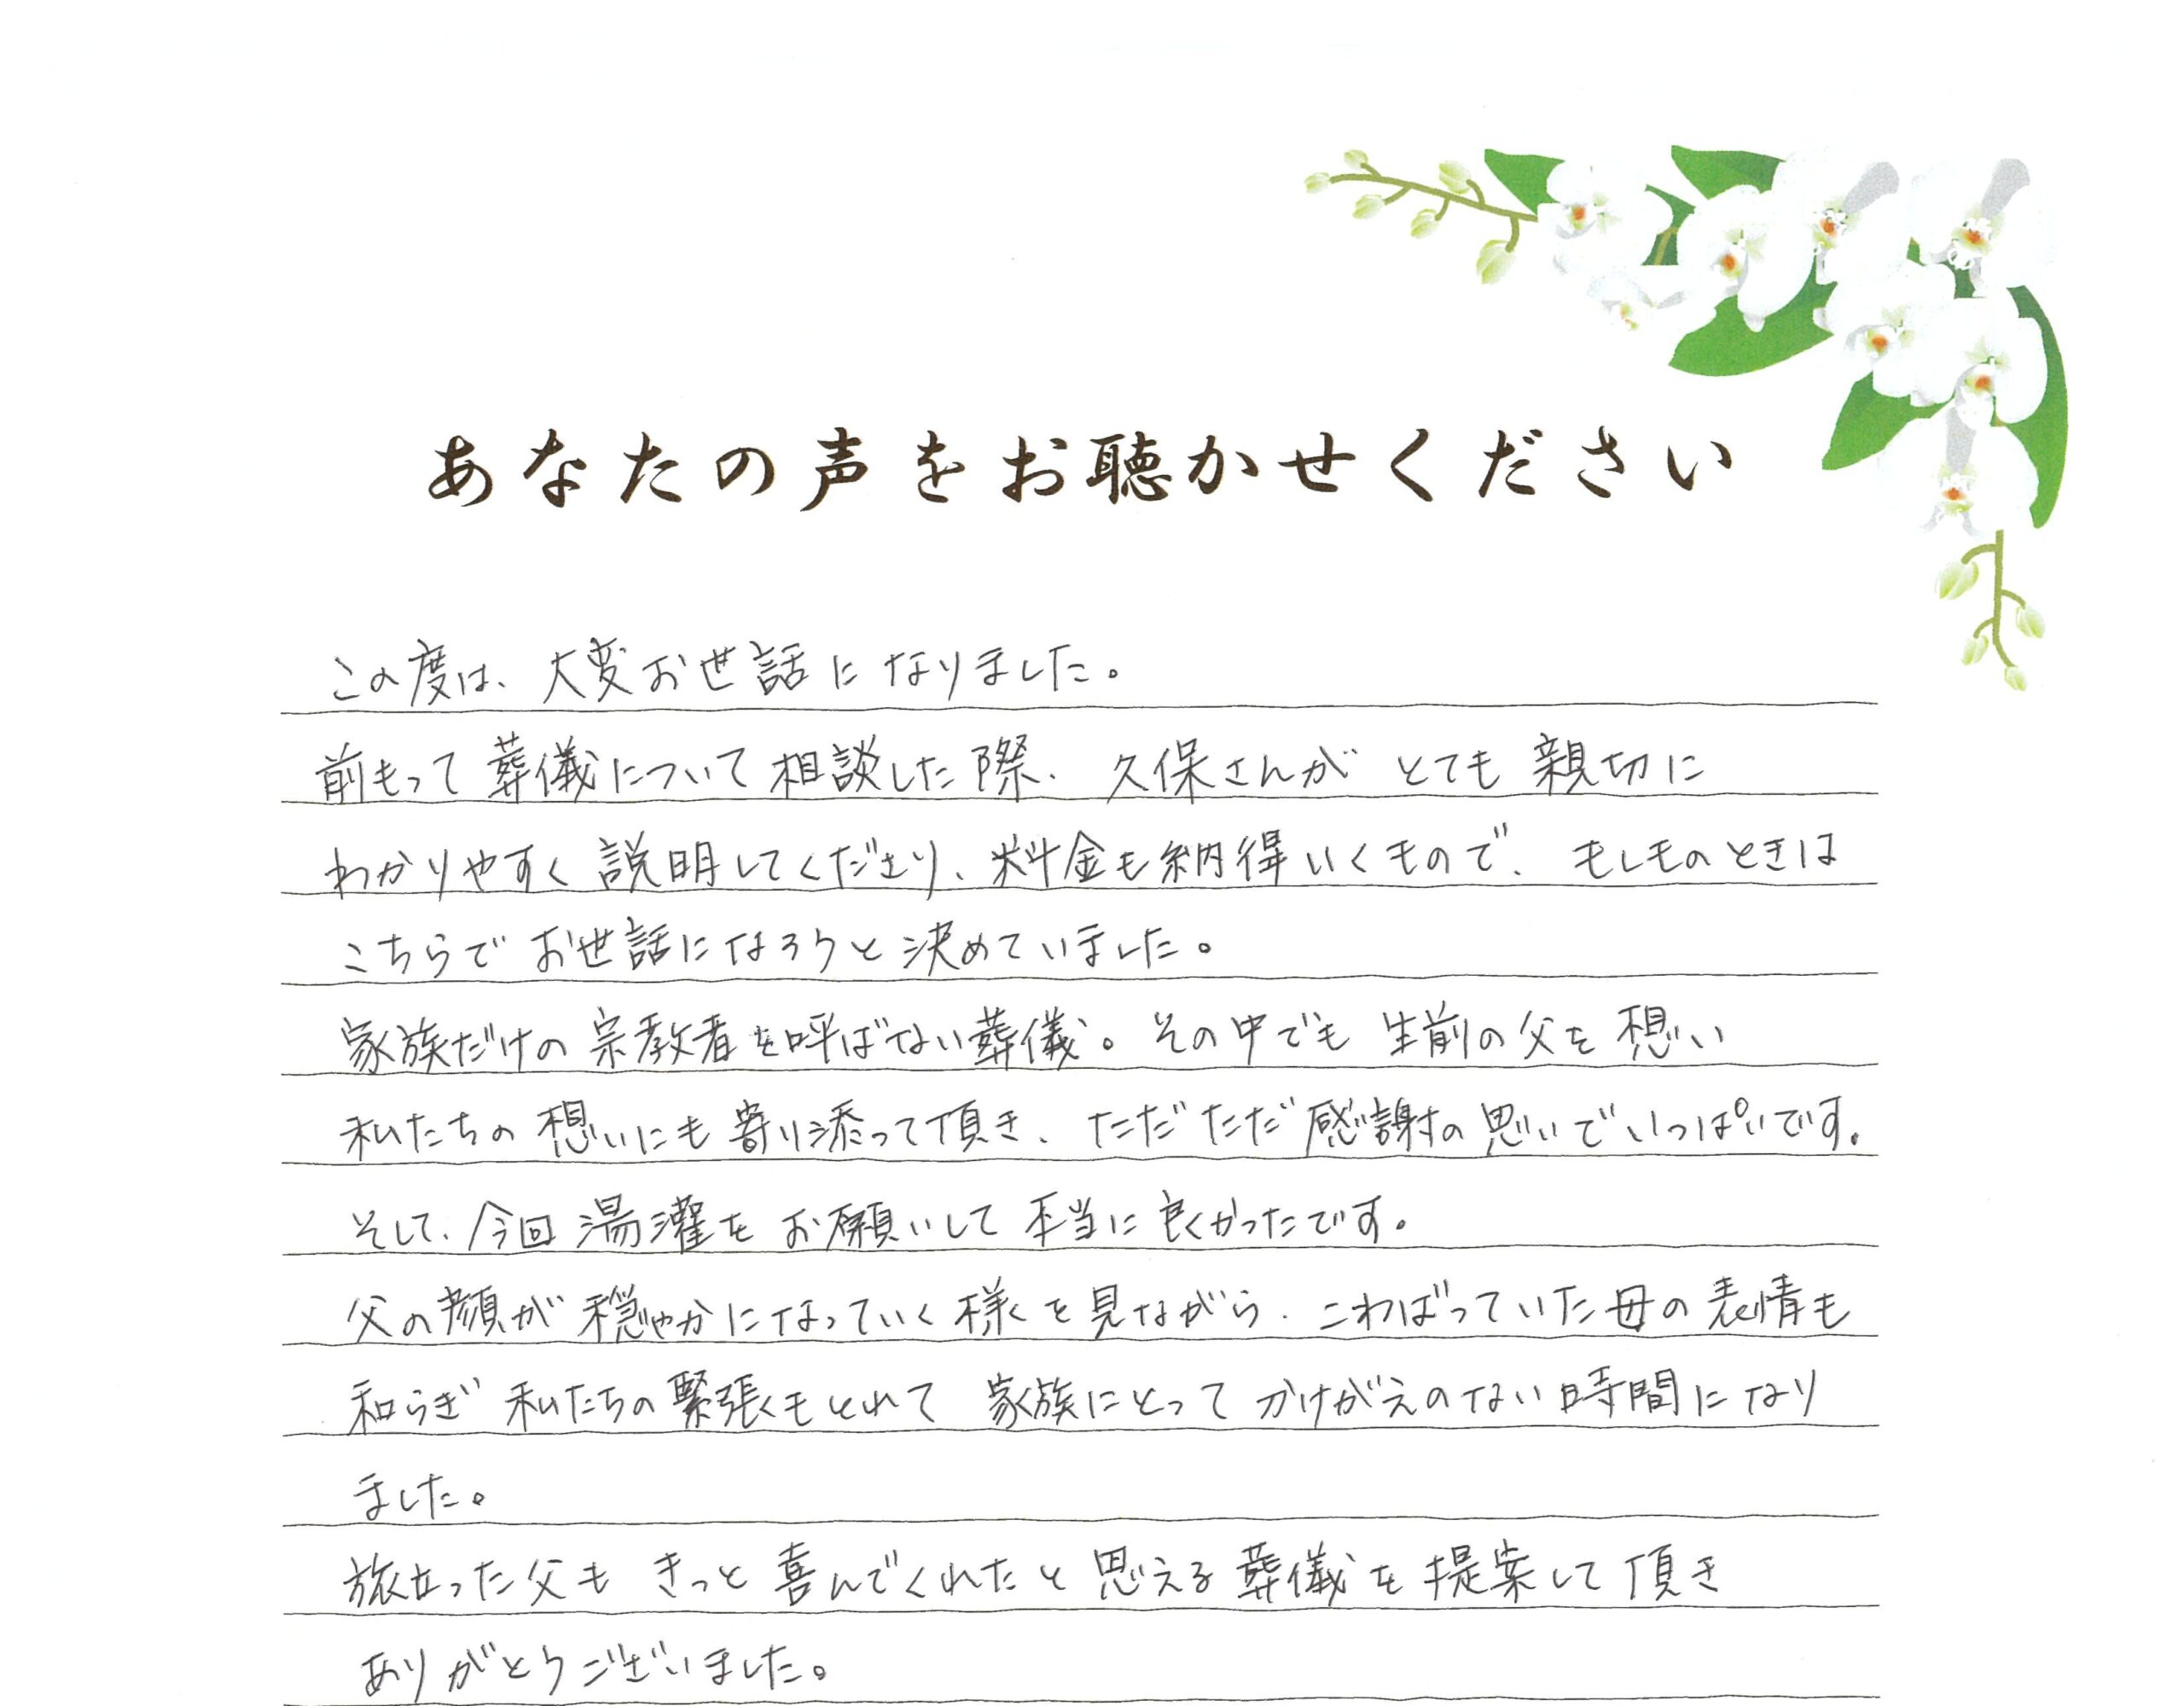 あなたの声をお聴かせください
この度は、大変お世話になりました。
前もって葬儀について相談した際、久保さんがとても親切に
わかりやすく説明してくださり、料金も納得いくもので、もしものときは
こちらでお世話になろうと決めていました。
家族だけの宗教者を呼ばない葬儀。その中でも生前の父を想い
私たちの想いにも寄り添って頂き、ただただ感謝の思いでいっぱいです。
そして、今回湯灌をお願いして本当に良かったです。
父の顔が穏やかになっていく様を見ながら、こわばっていた母の表情も
和らぎ私たちの緊張もとれて家族にとってかけがえのない時間になり
ました。
旅立った父もきっと喜んでくれたと思える葬儀を提案して頂き
ありがとうございました。